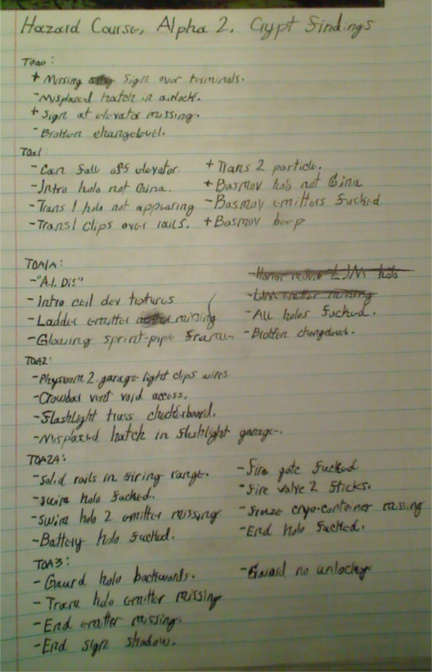 Hazard Course, Alpha 2, Crypt Findings
T0A0:
+ Missing sign over terminals.
- Misplaced hatch in airlock.
+ Sign at elevator missing.
- Broken changelevel.
T0A1:
- Can fall off elevator
- Intro holo not Gina.
- Trans 1 holo not appearing
- Trans1 clips over rails.
+ Trans 2 particle.
+ Basmov holo not Gina
- Basmov emitters fucked
+ Basmov beep
T0A1A:
- "A.I. Dis"
- Intro coil dev textures
- Ladder emitter missing
- Glowing sprint-pipe frame
- All holos fucked.
- Broken changelevel.
T0A2:
- Physroom 2 garage light clips wires
- Crowbar vent void access.
- Flashlight truss checkerboard.
- Mispaced hatch in flashlight garage.
T0A2A:
- Solid rails in firing range.
- Swim holo fucked.
- Swim holo 2 emitter missing
- Battery holo fucked.
- Fire gate fucked
- Fire valve 2 sticks.
- Freeze cryo-container missing
- End holo fucked.
T0A3:
- Gaurd holo backwards.
- Tram holo emitter missing
- End emitter missing.
- End sign shadow.
- Guard no unlock